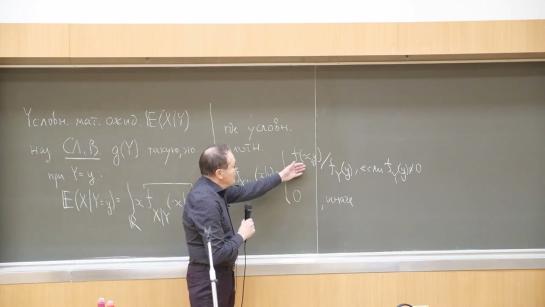 Условн. мат. ожид. E(X|Y)
наз СЛ.В. g(Y) такую, что
при Y=y.
E(X|Y=y) = ∫ x f_{X|Y}(x
R
где условн.
плотн.
f(x,y)/f_Y(y), если f_Y(y)≠0
0 , иначе